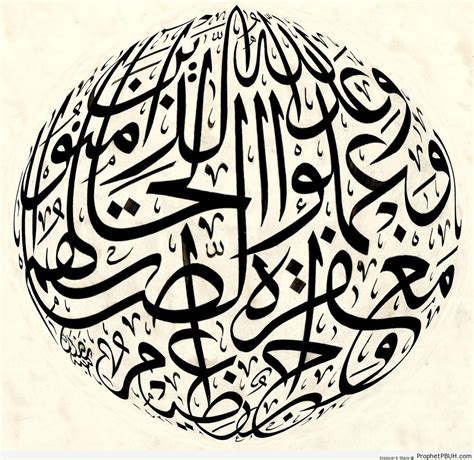 وعد الله الذين آمنوا
وعملوا الصالحات لهم
مغفرة
وأجر عظيم
ProphetPBUH.com